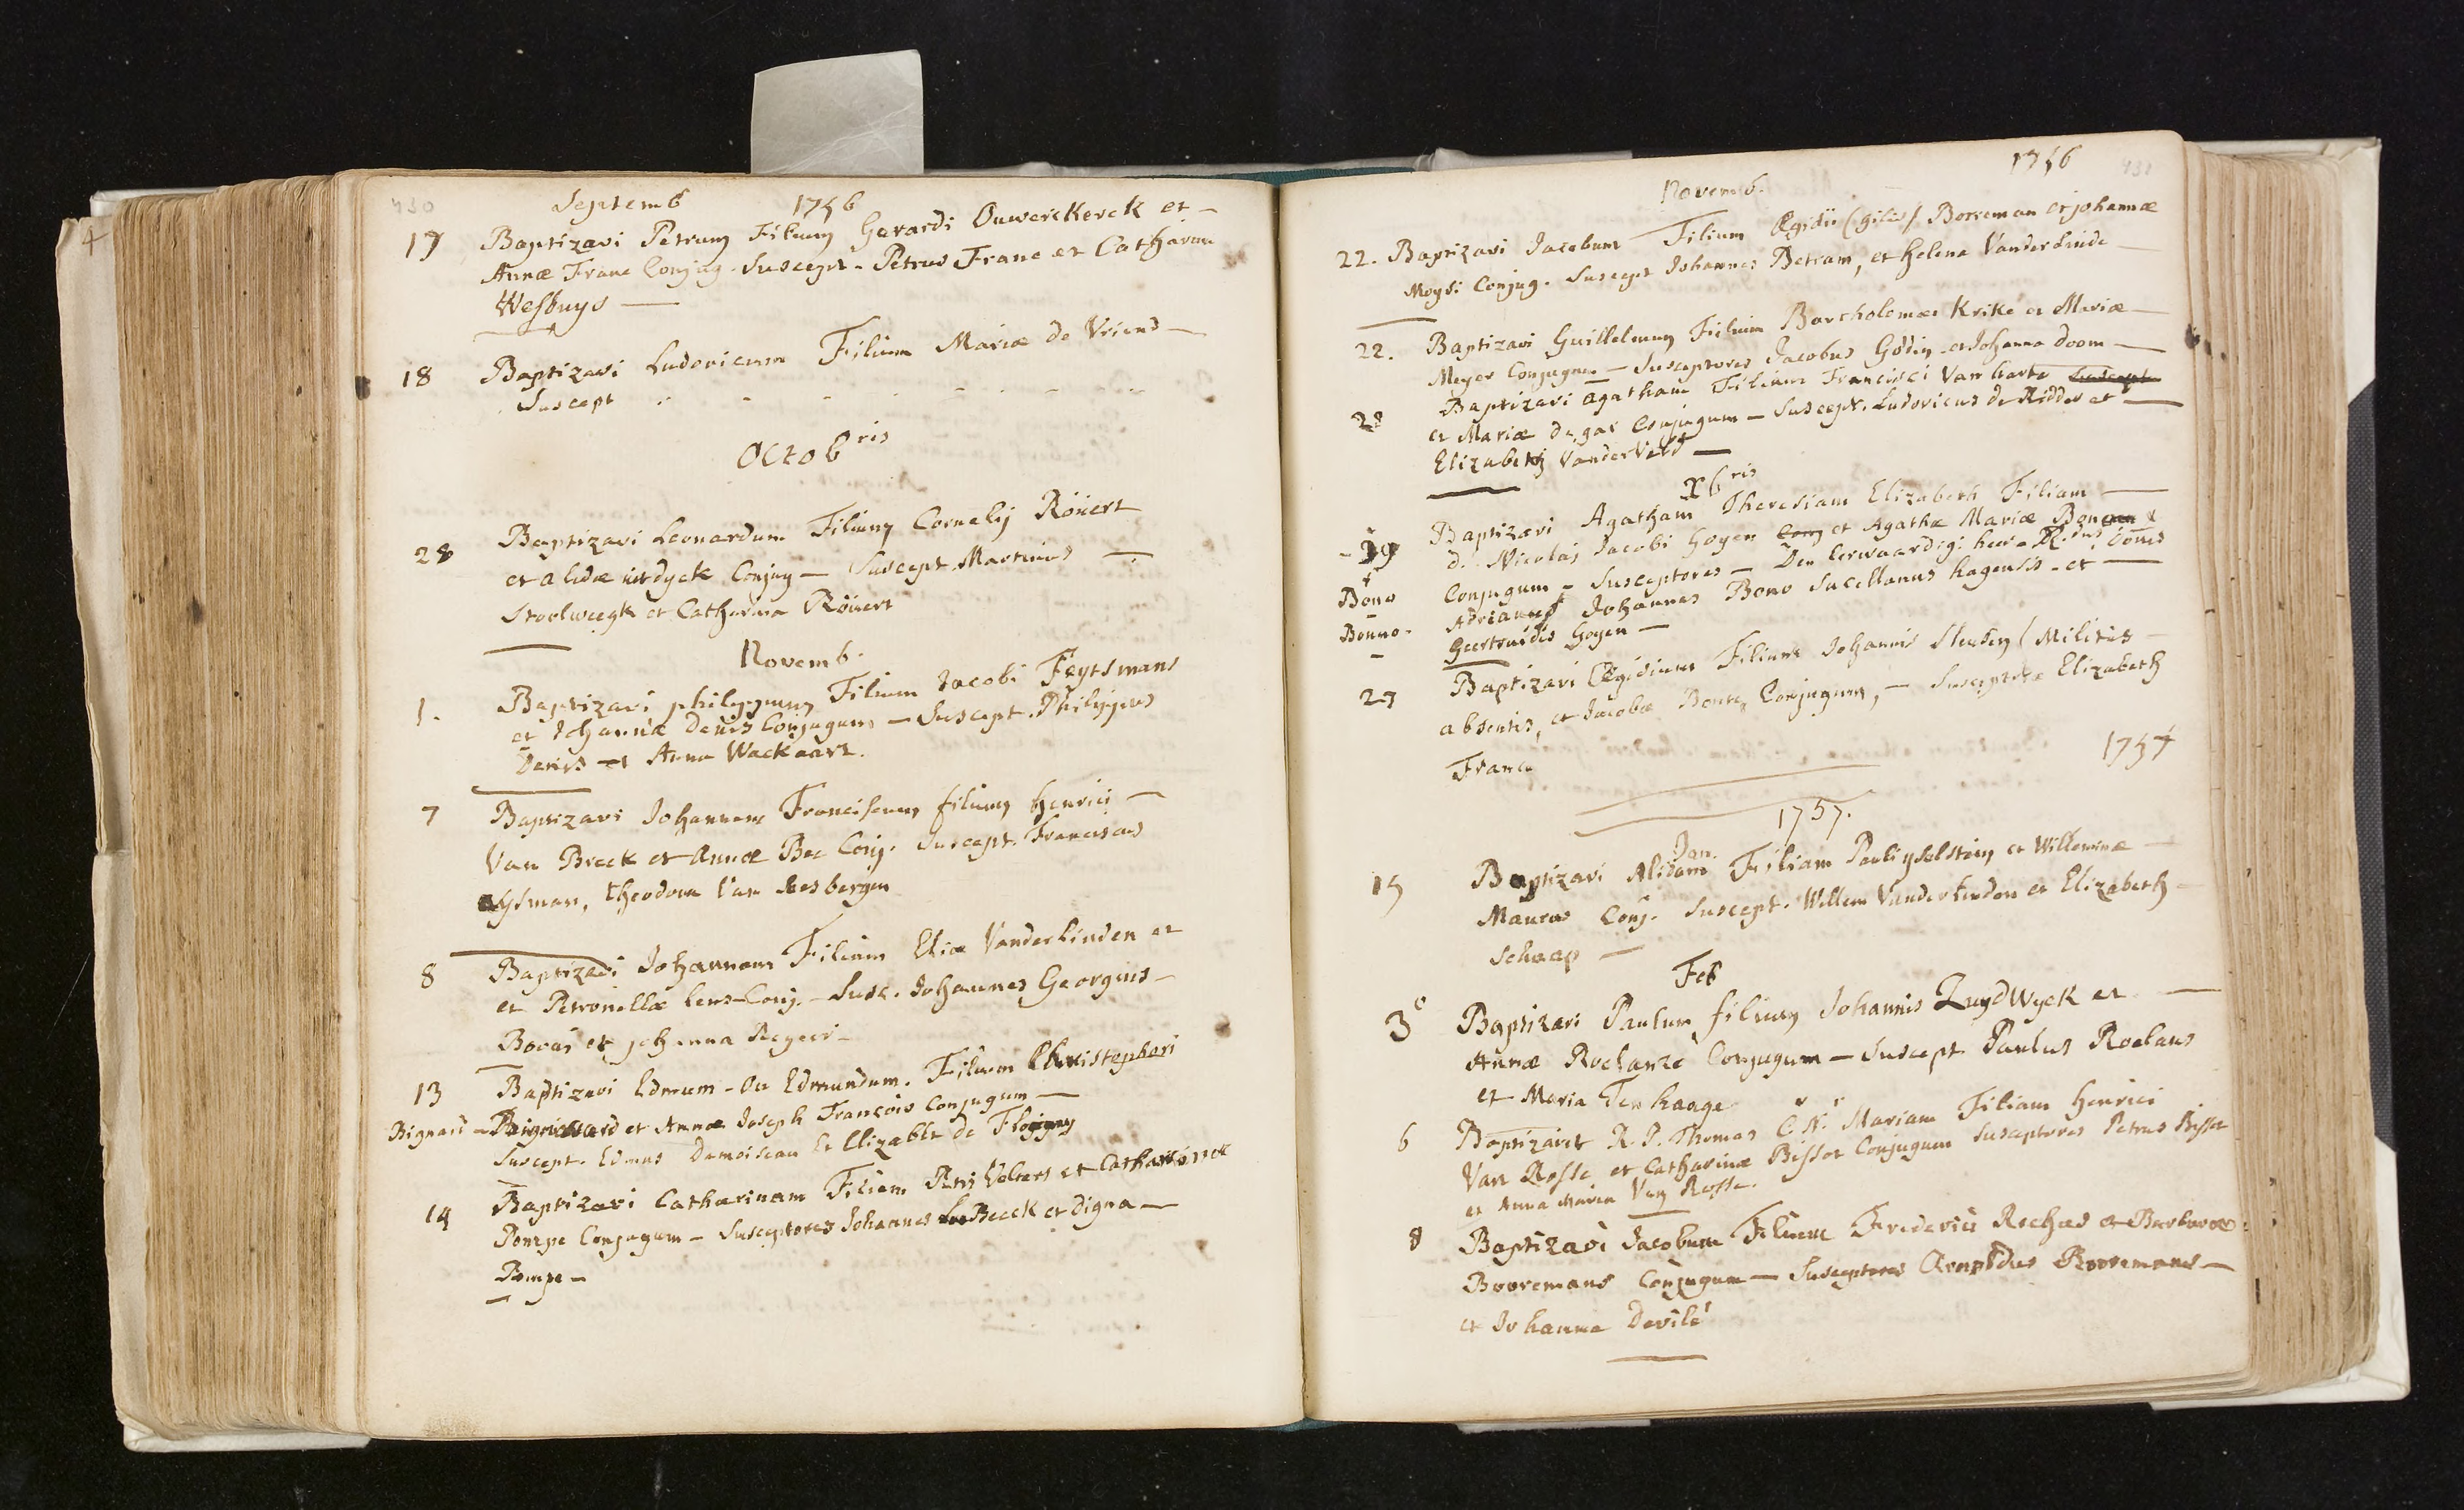 430
Septemb 1756
17 Baptizavi Petrum Filium Gerardi Ouwerckerck et -
Annæ Franc Conjug - Suscept - Petrus Franc et Catharina
Wesbuys -
18 Baptizavi Ludovicum Filium Mariæ de Vriend -
Suscept
Octobris
28 Baptizavi Leonardum Filium Cornelij Röuert
et Alidæ uitdyck Conjug - Suscept. Martinus -
Stoolweegk et Catharina Röuert
Novemb.
1. Baptizavi philippum Filium Jacobi Feytsmans
et Johannæ Denis Conjugum - Suscept. Philippus
Denis et Anna Wackaart.
7 Baptizavi Johannem Franciscum filium henrici -
Van Breck et Annæ Bec Conj. Suscept. Franciscus
Theodora Van Resbergen
8 Baptizavi Johannem Filium Eliæ Vanderlinden et
et Petronellæ Lens Conj. - Susc. Johannes Georgius -
Bovas et johanna Regeer -
13 Baptizavi Edmum - Ou Edmundum. Filium Christophori
Bignard - et Annæ Joseph François Conjugum -
Suscept. Edmus Damoiseau et Elizabet de Flogigny
14 Baptizavi Catharinam Filiam Petri Volters et Catharinæ
Pompe Conjugum - Susceptores Johannes Beeck et Digna -
Pompe -
1756 431
Novemb.
22. Baptizavi Jacobum Filium Ægidii (gilis) Borreman et johannæ
Moysi Conjug. Suscept Johannes Betram, et helena Vanderlinde -
22. Baptizavi Guillelmum Filium Bartholomæi Krike et Mariæ -
Meyer Conjugum - Susceptores Jacobus Godin et Johanna Doom -
28 Baptizavi Agatham Filiam Francisci Van harte Suscept
et Mariæ de gar Conjugum - Suscept. Ludovicus de Ridder et -
Elizabeth Vander Veld -
Xbris
19 Baptizavi Agatham Theresiam Elizabeth Filiam -
d. Nicolai Jacobi hoyen Conj et Agathæ Mariæ
Bono Conjugum - Susceptores - Den Eerwaardig. heer
Bonno - Adrianus Johannes Bono Sacellanus hagensis - et -
Geertruidis hoyen -
27 Baptizavi Ægidium Filium Johannis (Militis -
absentis, et Jacobæ Bonte, Conjugum, - Susceptrix Elizabeth
Franc
1757
1757.
Jan.
15 Baptizavi Alidam Filiam Pauli yselstein et Willeminæ -
Mauros Conj. Suscept. Willem Vanderlinden et Elizabeth -
Schaap -
Feb
3 Baptizavi Paulum filium Johannis ZuydWyck et -
Annæ Roelanze Conjugum - Suscept Paulus Roelans
et Maria Ten haage
6 Baptizavit R. P. Thomas C. N. Mariam Filiam henrici
Van Rosse et Catharinæ Bissot Conjugum Susceptores Petrus Bissot
et Anna Maria Van Rosse.
8 Baptizavi Jacobum Filium Frederici Rochus et Barbaræ
Booremans Conjugum - Susceptores Arnoldus Booremans -
et Johanna Devilé